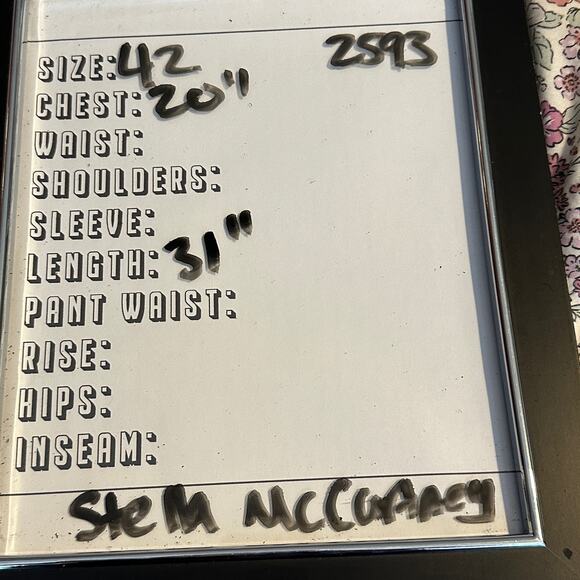 SIZE: 42 2593
CHEST: 20"
WAIST:
SHOULDERS:
SLEEVE:
LENGTH: 31"
PANT WAIST:
RISE:
HIPS:
INSEAM:
Stella McCartney